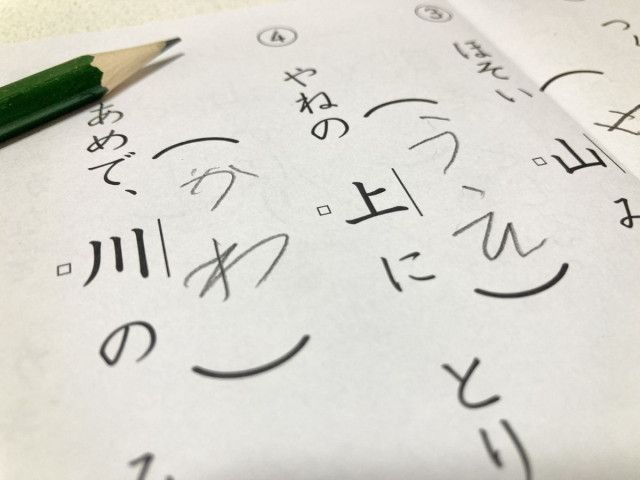 ③ ほそい山
④ やねの上にとり
(うえ)
あめで、川の
(かわ)